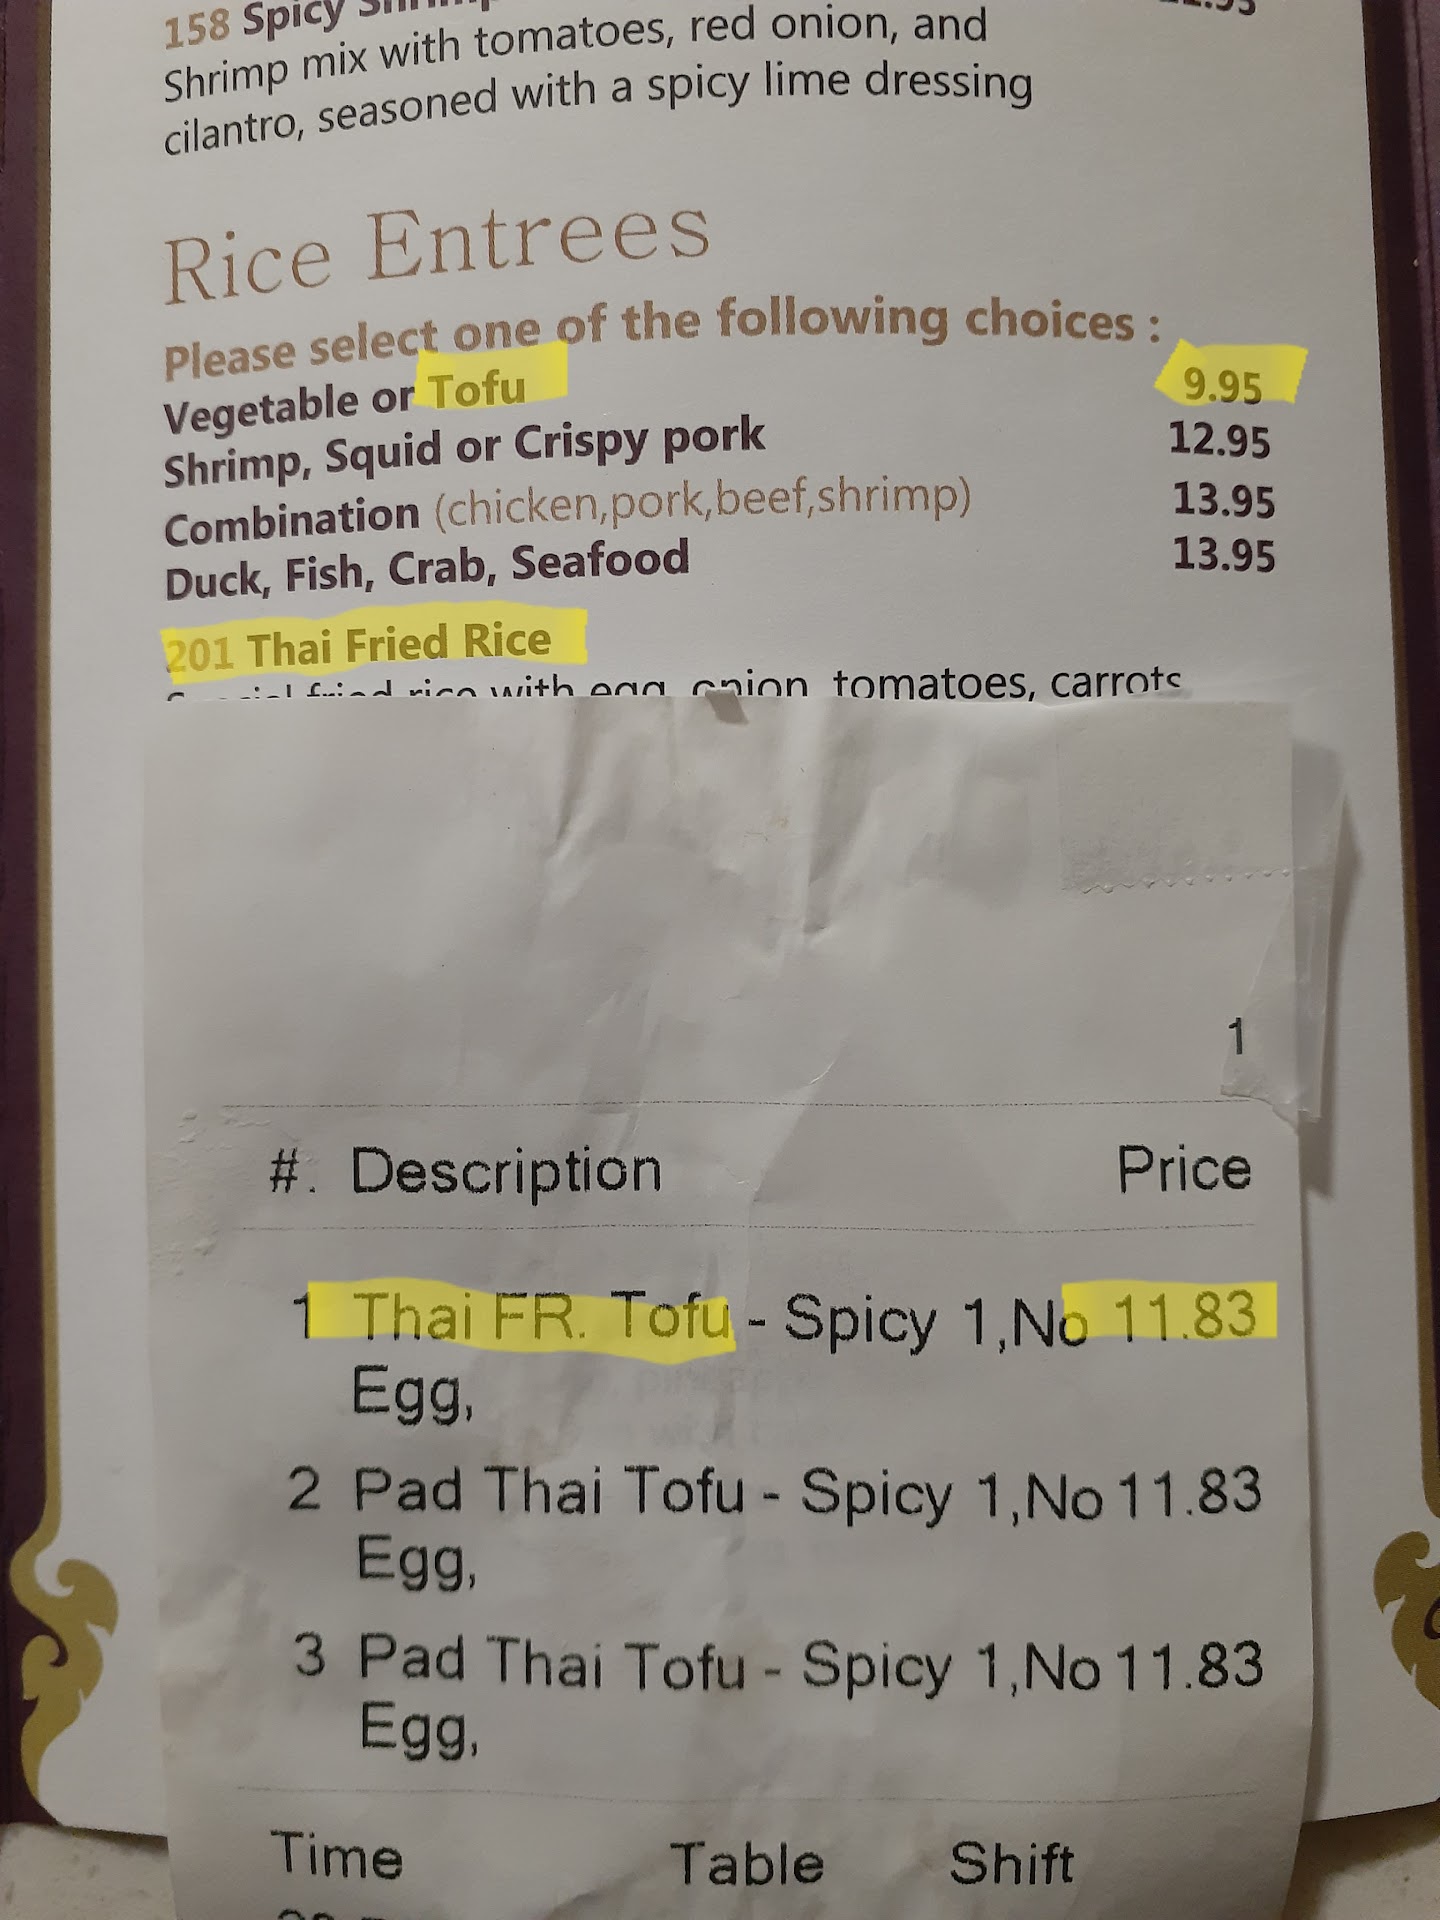 158 Spicy
Shrimp mix with tomatoes, red onion, and
cilantro, seasoned with a spicy lime dressing
Rice Entrees
Please select one of the following choices :
Vegetable or Tofu 9.95
Shrimp, Squid or Crispy pork 12.95
Combination (chicken,pork,beef,shrimp) 13.95
Duck, Fish, Crab, Seafood 13.95
201 Thai Fried Rice
Special fried rice with egg, onion, tomatoes, carrots
1
#. Description Price
1 Thai FR. Tofu - Spicy 1,No 11.83
Egg,
2 Pad Thai Tofu - Spicy 1,No 11.83
Egg,
3 Pad Thai Tofu - Spicy 1,No 11.83
Egg,
Time Table Shift